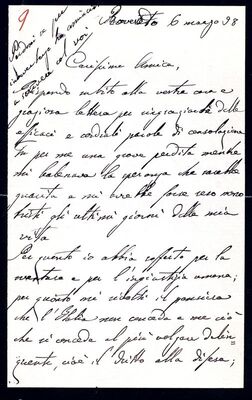 9
Roveredo 6 marzo 98
Perdonate per
col voi
Carissima Amica,
Rispondo subito alla vostra cara e
graziosa lettera per ringraziarvi delle
efficaci e cordiali parole di consolazione
Fu per me una grave perdita mentre
mi balenava la speranza che sarebbe
guarita e mi avrebbe forse reso meno
tristi gli ultimi giorni della mia
vita
Per quanto io abbia sofferto per la
sventura e per l'ingiustizia umana;
per quanto mi rivolti il pensiero
che l'Italia non conceda a me ciò
che si concede al più volgare delin=
quente, cioè il dritto alla difesa;